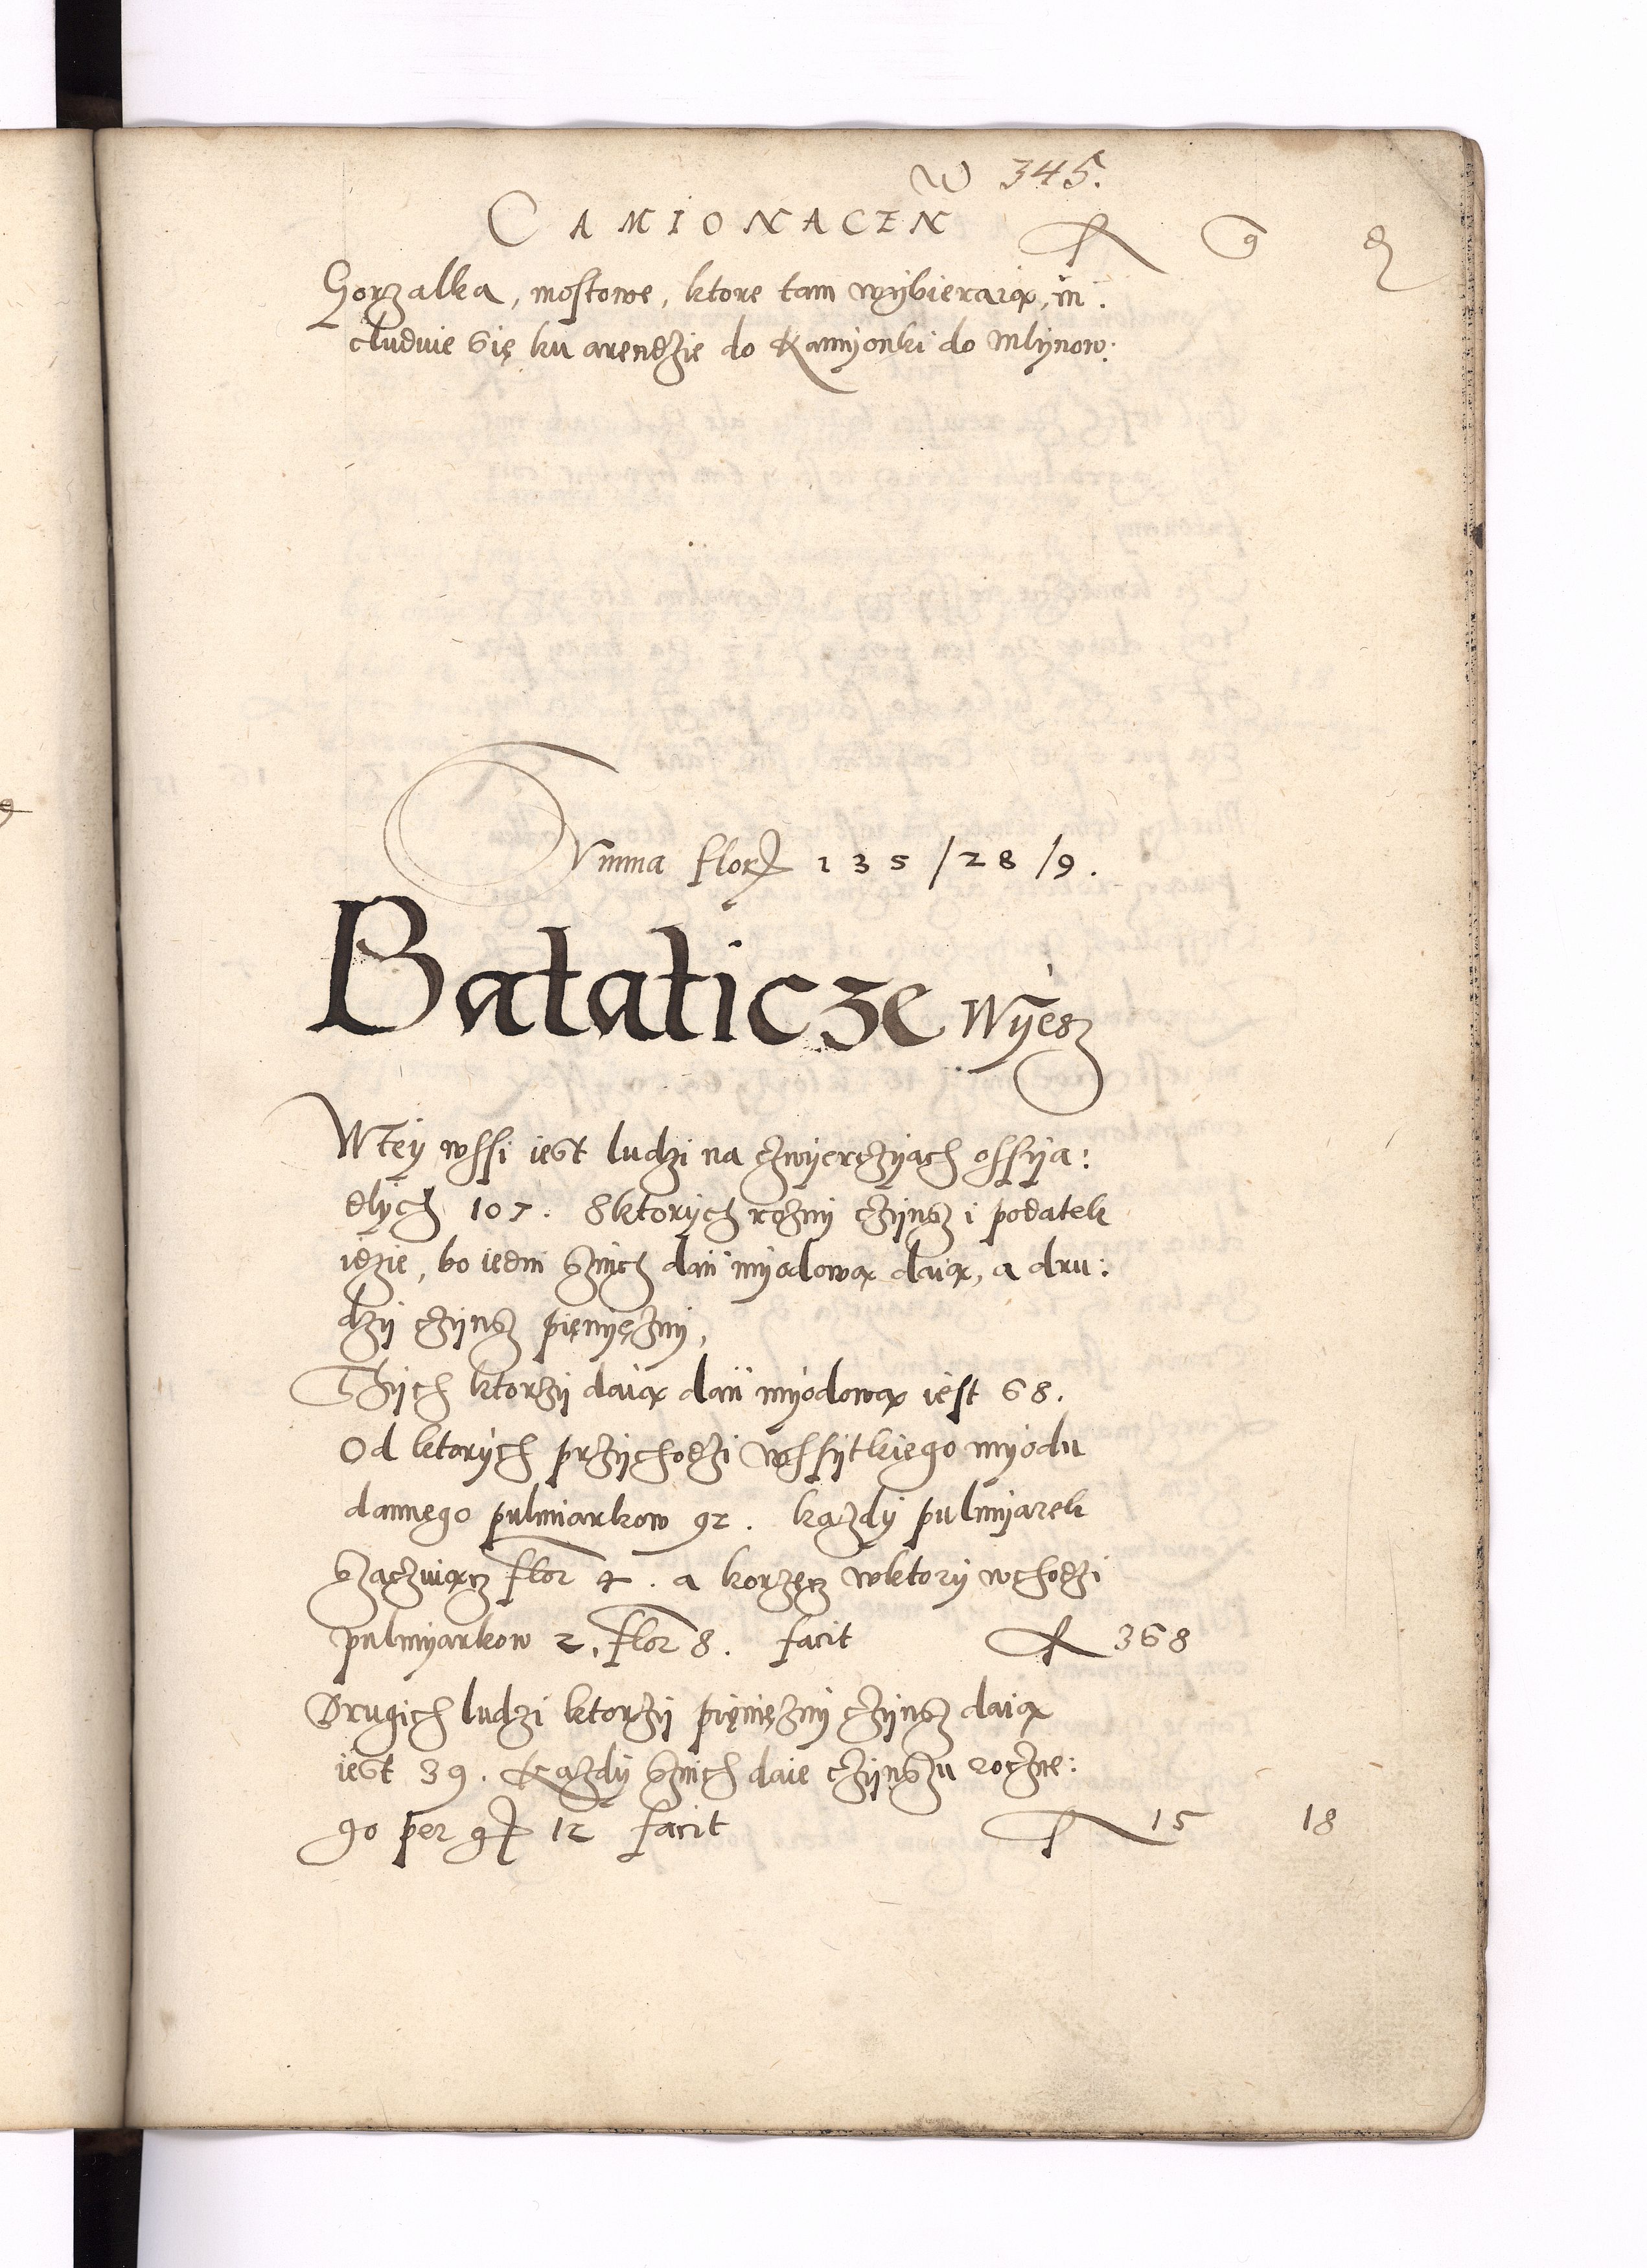 W 345.
CAMIONACEN fl g d
Gorzalka, mostowe, ktore tam wÿbieraią, in:
cluduie się ku arendzie do Kamÿonki do Mlÿnow:
Summa flor 135/28/9.
Bataticze Wÿesz
W teÿ wssi iest ludzi na czwÿerczÿach ossÿa:
dlÿch 107. Sktorÿch rożnÿ czÿnsz i podatek
idzie, bo iedni sznich dań mÿodową daią, a dru:
dzÿ czÿnsz pięnÿężnÿ,
Thÿch ktorzÿ daią dań mÿodową iest 68.
Od ktorÿch przÿchodzi wssÿtkięgo mÿodu
dannęgo pulmiarkow 92. każdÿ pulmÿarek
szaczuiącz flor 4. a korzęcz wktorÿ wchodzi
pulmÿarkow 2. flor 8. facit fl 368
Drugich ludzi ktorzÿ pięniężnÿ czÿnsz daią
iest 39. Każdÿ sznich daie czÿnszu roczne:
go per gr 12 facit fl 15 18